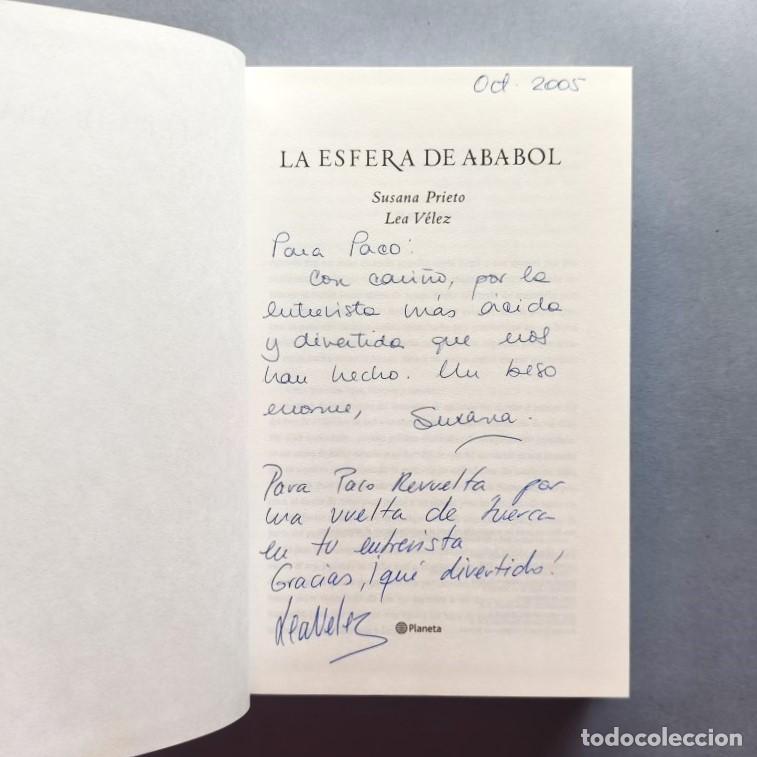 Oct. 2005
LA ESFERA DE ABABOL
Susana Prieto
Lea Vélez
Para Paco:
Con cariño, por la
entrevista más ácida
y divertida que nos
han hecho. Un beso
enorme, Susana.
Para Paco Revuelta por
una vuelta de tuerca
en tu entrevista
Gracias, ¡qué divertido!
Lea Velez
Planeta
todocoleccion